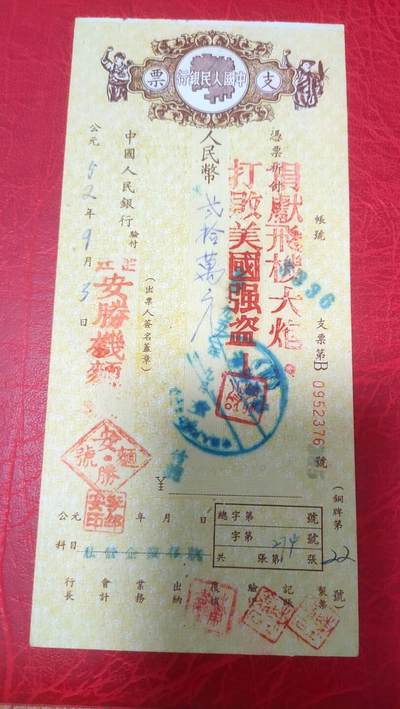 支票
中國人民銀行
帳號
支票第B 0952376號
捐獻飛機大炮
打毀美國强盜！
憑票祈付
人民幣 弍拾萬元
（出票人簽名蓋章）
中國人民銀行 驗付
公元52年9月3日
正江
安勝機麵
安勝
麵號
¥
（銅牌第22號）
總字第 號
字第 號
共 張第 張
274
公元 年 月 日
科目
行長
會計
業務
出納
覆核
驗印
記帳
製票